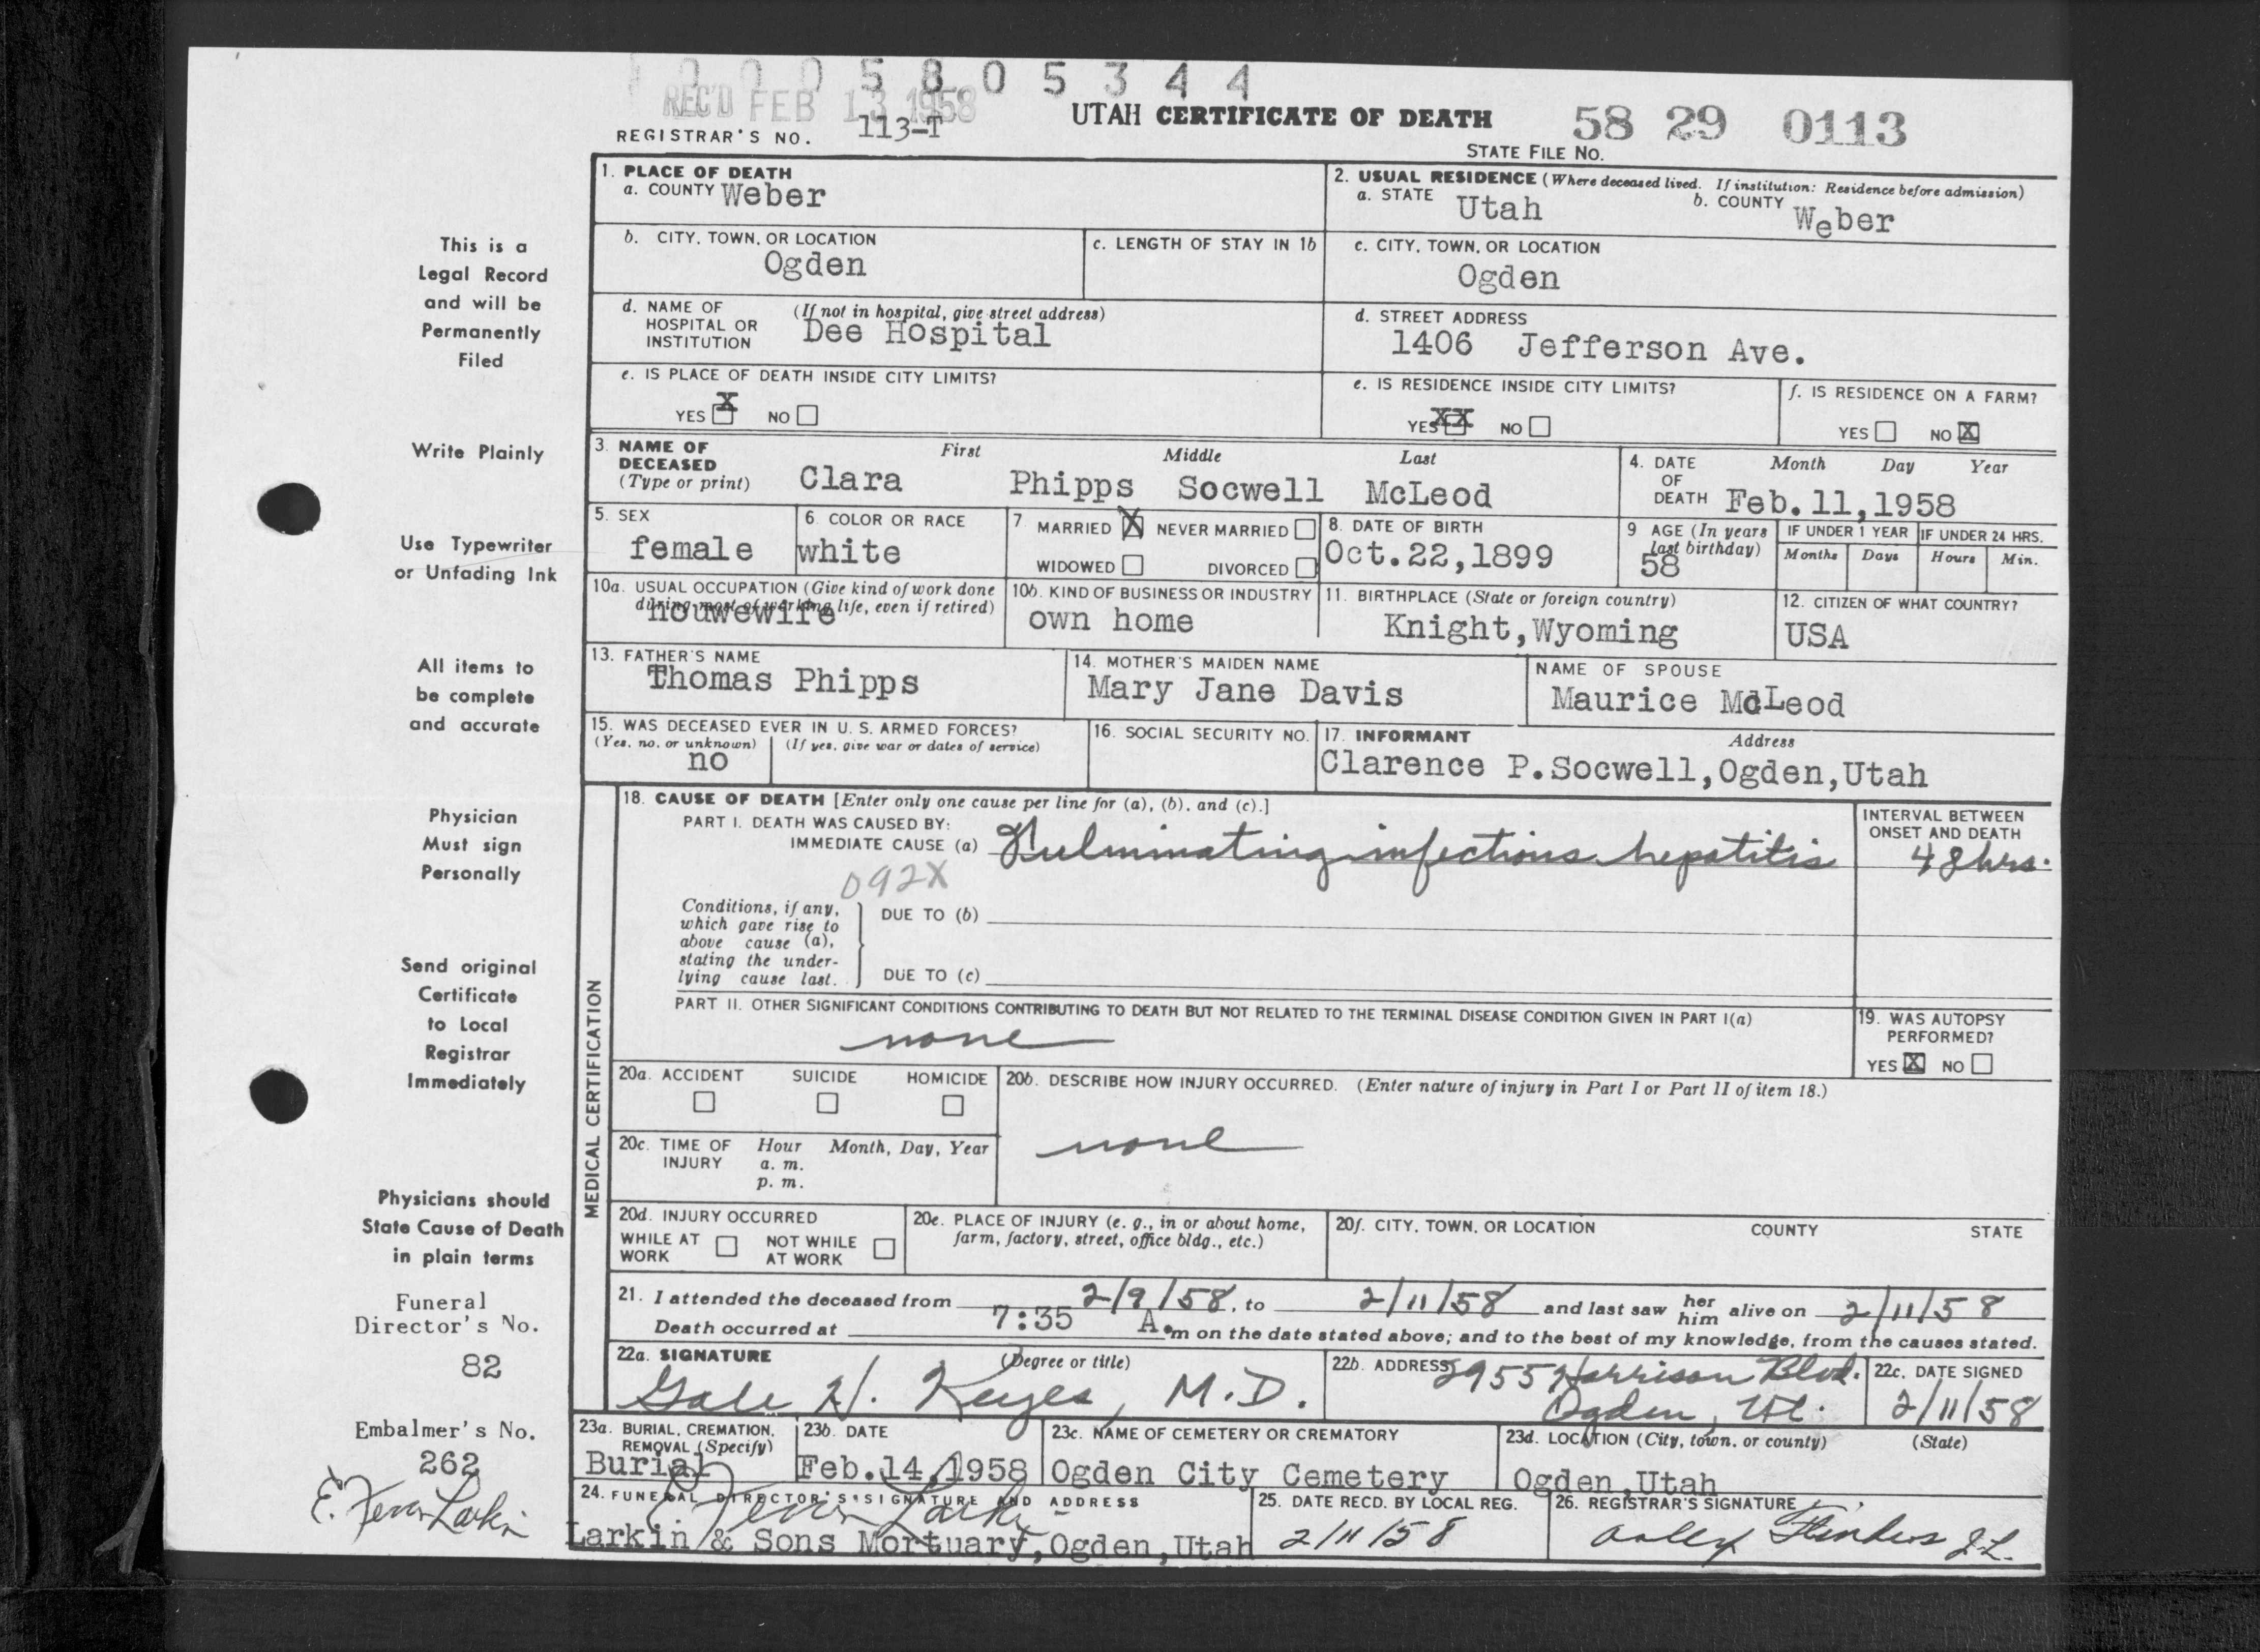 0005805344
REC'D FEB 13 1958
UTAH CERTIFICATE OF DEATH
58 29 0113
REGISTRAR'S NO. 113-T
STATE FILE NO.
1. PLACE OF DEATH
a. COUNTY Weber
2. USUAL RESIDENCE (Where deceased lived. If institution: Residence before admission)
a. STATE Utah b. COUNTY Weber
b. CITY, TOWN, OR LOCATION
Ogden
c. LENGTH OF STAY IN 1b
c. CITY, TOWN, OR LOCATION
Ogden
d. NAME OF HOSPITAL OR INSTITUTION (If not in hospital, give street address)
Dee Hospital
d. STREET ADDRESS
1406 Jefferson Ave.
e. IS PLACE OF DEATH INSIDE CITY LIMITS?
YES X NO
e. IS RESIDENCE INSIDE CITY LIMITS?
YES XX NO
f. IS RESIDENCE ON A FARM?
YES NO X
3. NAME OF DECEASED (Type or print)
First Middle Last
Clara Phipps Socwell McLeod
4. DATE OF DEATH Month Day Year
Feb. 11, 1958
5. SEX
female
6. COLOR OR RACE
white
7. MARRIED X NEVER MARRIED
WIDOWED DIVORCED
8. DATE OF BIRTH
Oct.22,1899
9 AGE (In years last birthday)
58
IF UNDER 1 YEAR
Months Days
IF UNDER 24 HRS.
Hours Min.
10a. USUAL OCCUPATION (Give kind of work done during most of working life, even if retired)
houwewife
10b. KIND OF BUSINESS OR INDUSTRY
own home
11. BIRTHPLACE (State or foreign country)
Knight,Wyoming
12. CITIZEN OF WHAT COUNTRY?
USA
13. FATHER'S NAME
Thomas Phipps
14. MOTHER'S MAIDEN NAME
Mary Jane Davis
NAME OF SPOUSE
Maurice McLeod
15. WAS DECEASED EVER IN U. S. ARMED FORCES?
(Yes, no, or unknown) (If yes, give war or dates of service)
no
16. SOCIAL SECURITY NO.
17. INFORMANT Address
Clarence P.Socwell,Ogden,Utah
MEDICAL CERTIFICATION
18. CAUSE OF DEATH [Enter only one cause per line for (a), (b), and (c).]
PART I. DEATH WAS CAUSED BY:
IMMEDIATE CAUSE (a) Fulminating infectious hepatitis
INTERVAL BETWEEN ONSET AND DEATH
48 hrs.
092X
Conditions, if any,
which gave rise to
above cause (a),
stating the under-
lying cause last.
DUE TO (b)
DUE TO (c)
PART II. OTHER SIGNIFICANT CONDITIONS CONTRIBUTING TO DEATH BUT NOT RELATED TO THE TERMINAL DISEASE CONDITION GIVEN IN PART I(a)
none
19. WAS AUTOPSY PERFORMED?
YES X NO
20a. ACCIDENT SUICIDE HOMICIDE
20b. DESCRIBE HOW INJURY OCCURRED. (Enter nature of injury in Part I or Part II of item 18.)
none
20c. TIME OF INJURY Hour Month, Day, Year
a. m.
p. m.
20d. INJURY OCCURRED
WHILE AT WORK NOT WHILE AT WORK
20e. PLACE OF INJURY (e. g., in or about home, farm, factory, street, office bldg., etc.)
20f. CITY, TOWN, OR LOCATION COUNTY STATE
21. I attended the deceased from 2/9/58, to 2/11/58 and last saw her him alive on 2/11/58
Death occurred at 7:35 A.m on the date stated above; and to the best of my knowledge, from the causes stated.
22a. SIGNATURE (Degree or title)
Gale H. Keyes, M.D.
22b. ADDRESS 2955 Harrison Blvd.
Ogden, Ut.
22c. DATE SIGNED
2/11/58
23a. BURIAL, CREMATION, REMOVAL (Specify)
Burial
23b. DATE
Feb.14,1958
23c. NAME OF CEMETERY OR CREMATORY
Ogden City Cemetery
23d. LOCATION (City, town, or county) (State)
Ogden,Utah
24. FUNERAL DIRECTOR'S SIGNATURE AND ADDRESS
Larkin & Sons Mortuary,Ogden,Utah
25. DATE RECD. BY LOCAL REG.
2/11/58
26. REGISTRAR'S SIGNATURE
This is a
Legal Record
and will be
Permanently
Filed
Write Plainly
Use Typewriter
or Unfading Ink
All items to
be complete
and accurate
Physician
Must sign
Personally
Send original
Certificate
to Local
Registrar
Immediately
Physicians should
State Cause of Death
in plain terms
Funeral
Director's No.
82
Embalmer's No.
262